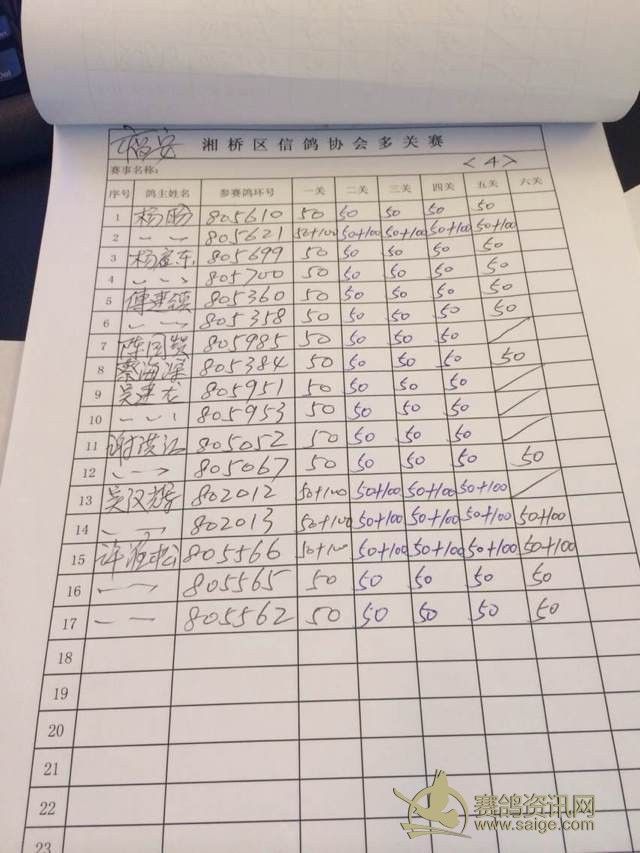 福安 湘桥区信鸽协会多关赛
赛事名称: <4>
序号 鸽主姓名 参赛鸽环号 一关 二关 三关 四关 五关 六关
1 杨旸 805610 50 50 50 50 50
2 〃 805621 50+100 50+100 50+100 50+100 50+100
3 杨庭东 805699 50 50 50 50 50
4 〃 805700 50 50 50 50 50
5 傅建镇 805360 50 50 50 50 50
6 〃 805358 50 50 50 50 50
7 805985 50 50 50 50
8 蔡海深 805384 50 50 50 50 50
9 吴建龙 805951 50 50 50 50
10 〃 805953 50 50 50 50
11 谢洪江 805052 50 50 50 50
12 〃 805067 50 50 50 50 50
13 吴汉 802012 50+100 50+100 50+100 50+100
14 〃 802013 50+100 50+100 50+100 50+100 50+100
15 许 805566 50+100 50+100 50+100 50+100 50+100
16 〃 805565 50 50 50 50 50
17 〃 805562 50 50 50 50 50
18
19
20
21
22
23
赛鸽资讯网
www.saige.com